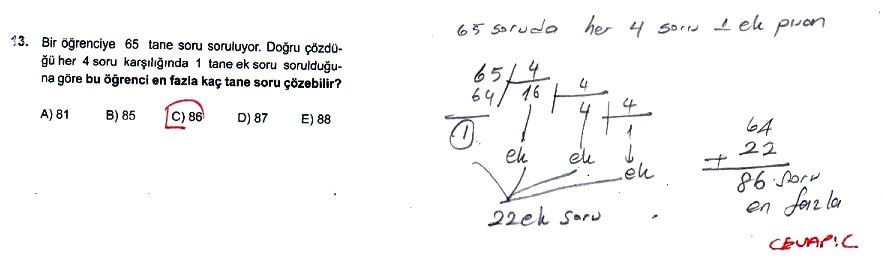 13. Bir öğrenciye 65 tane soru soruluyor. Doğru çözdü-
ğü her 4 soru karşılığında 1 tane ek soru sorulduğu-
na göre bu öğrenci en fazla kaç tane soru çözebilir?
A) 81 B) 85 C) 86 D) 87 E) 88
65 soruda her 4 soru 1 ek puan
65 4
64 16 4
4 4
1 1
ek ek ek
22 ek soru
64
+ 22
86 soru
en fazla
CEVAP: C